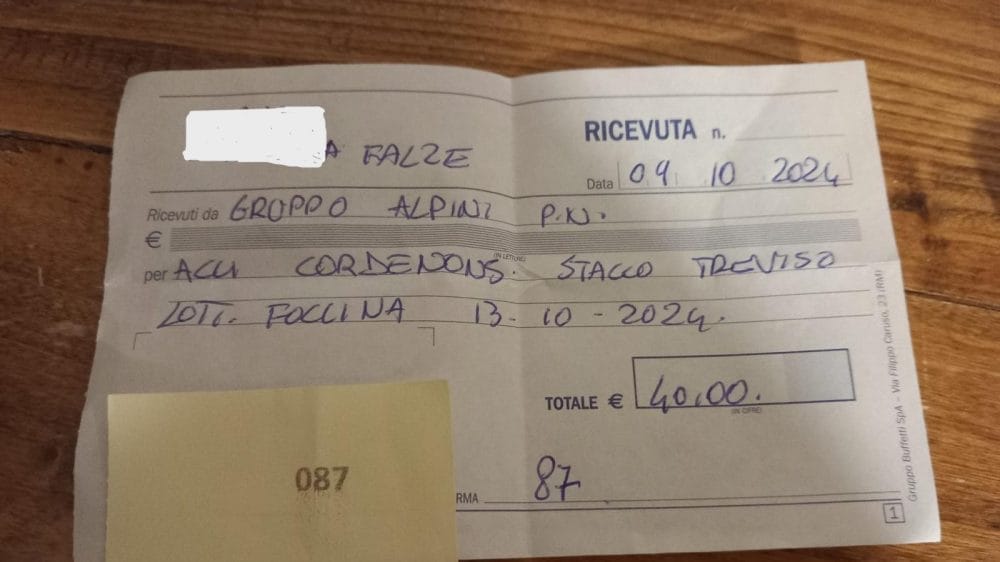 A FALZE
RICEVUTA n.
Data 09 10 2024
Ricevuti da GRUPPO ALPINI P.N.
€
(IN LETTERE)
per ACLI CORDENONS. STACCO TREVISO
LOTT. FOLLINA 13-10-2024.
TOTALE € 40,00.
(IN CIFRE)
087
RMA 87
1
Gruppo Buffetti SpA – Via Filippo Caruso, 23 (RM)